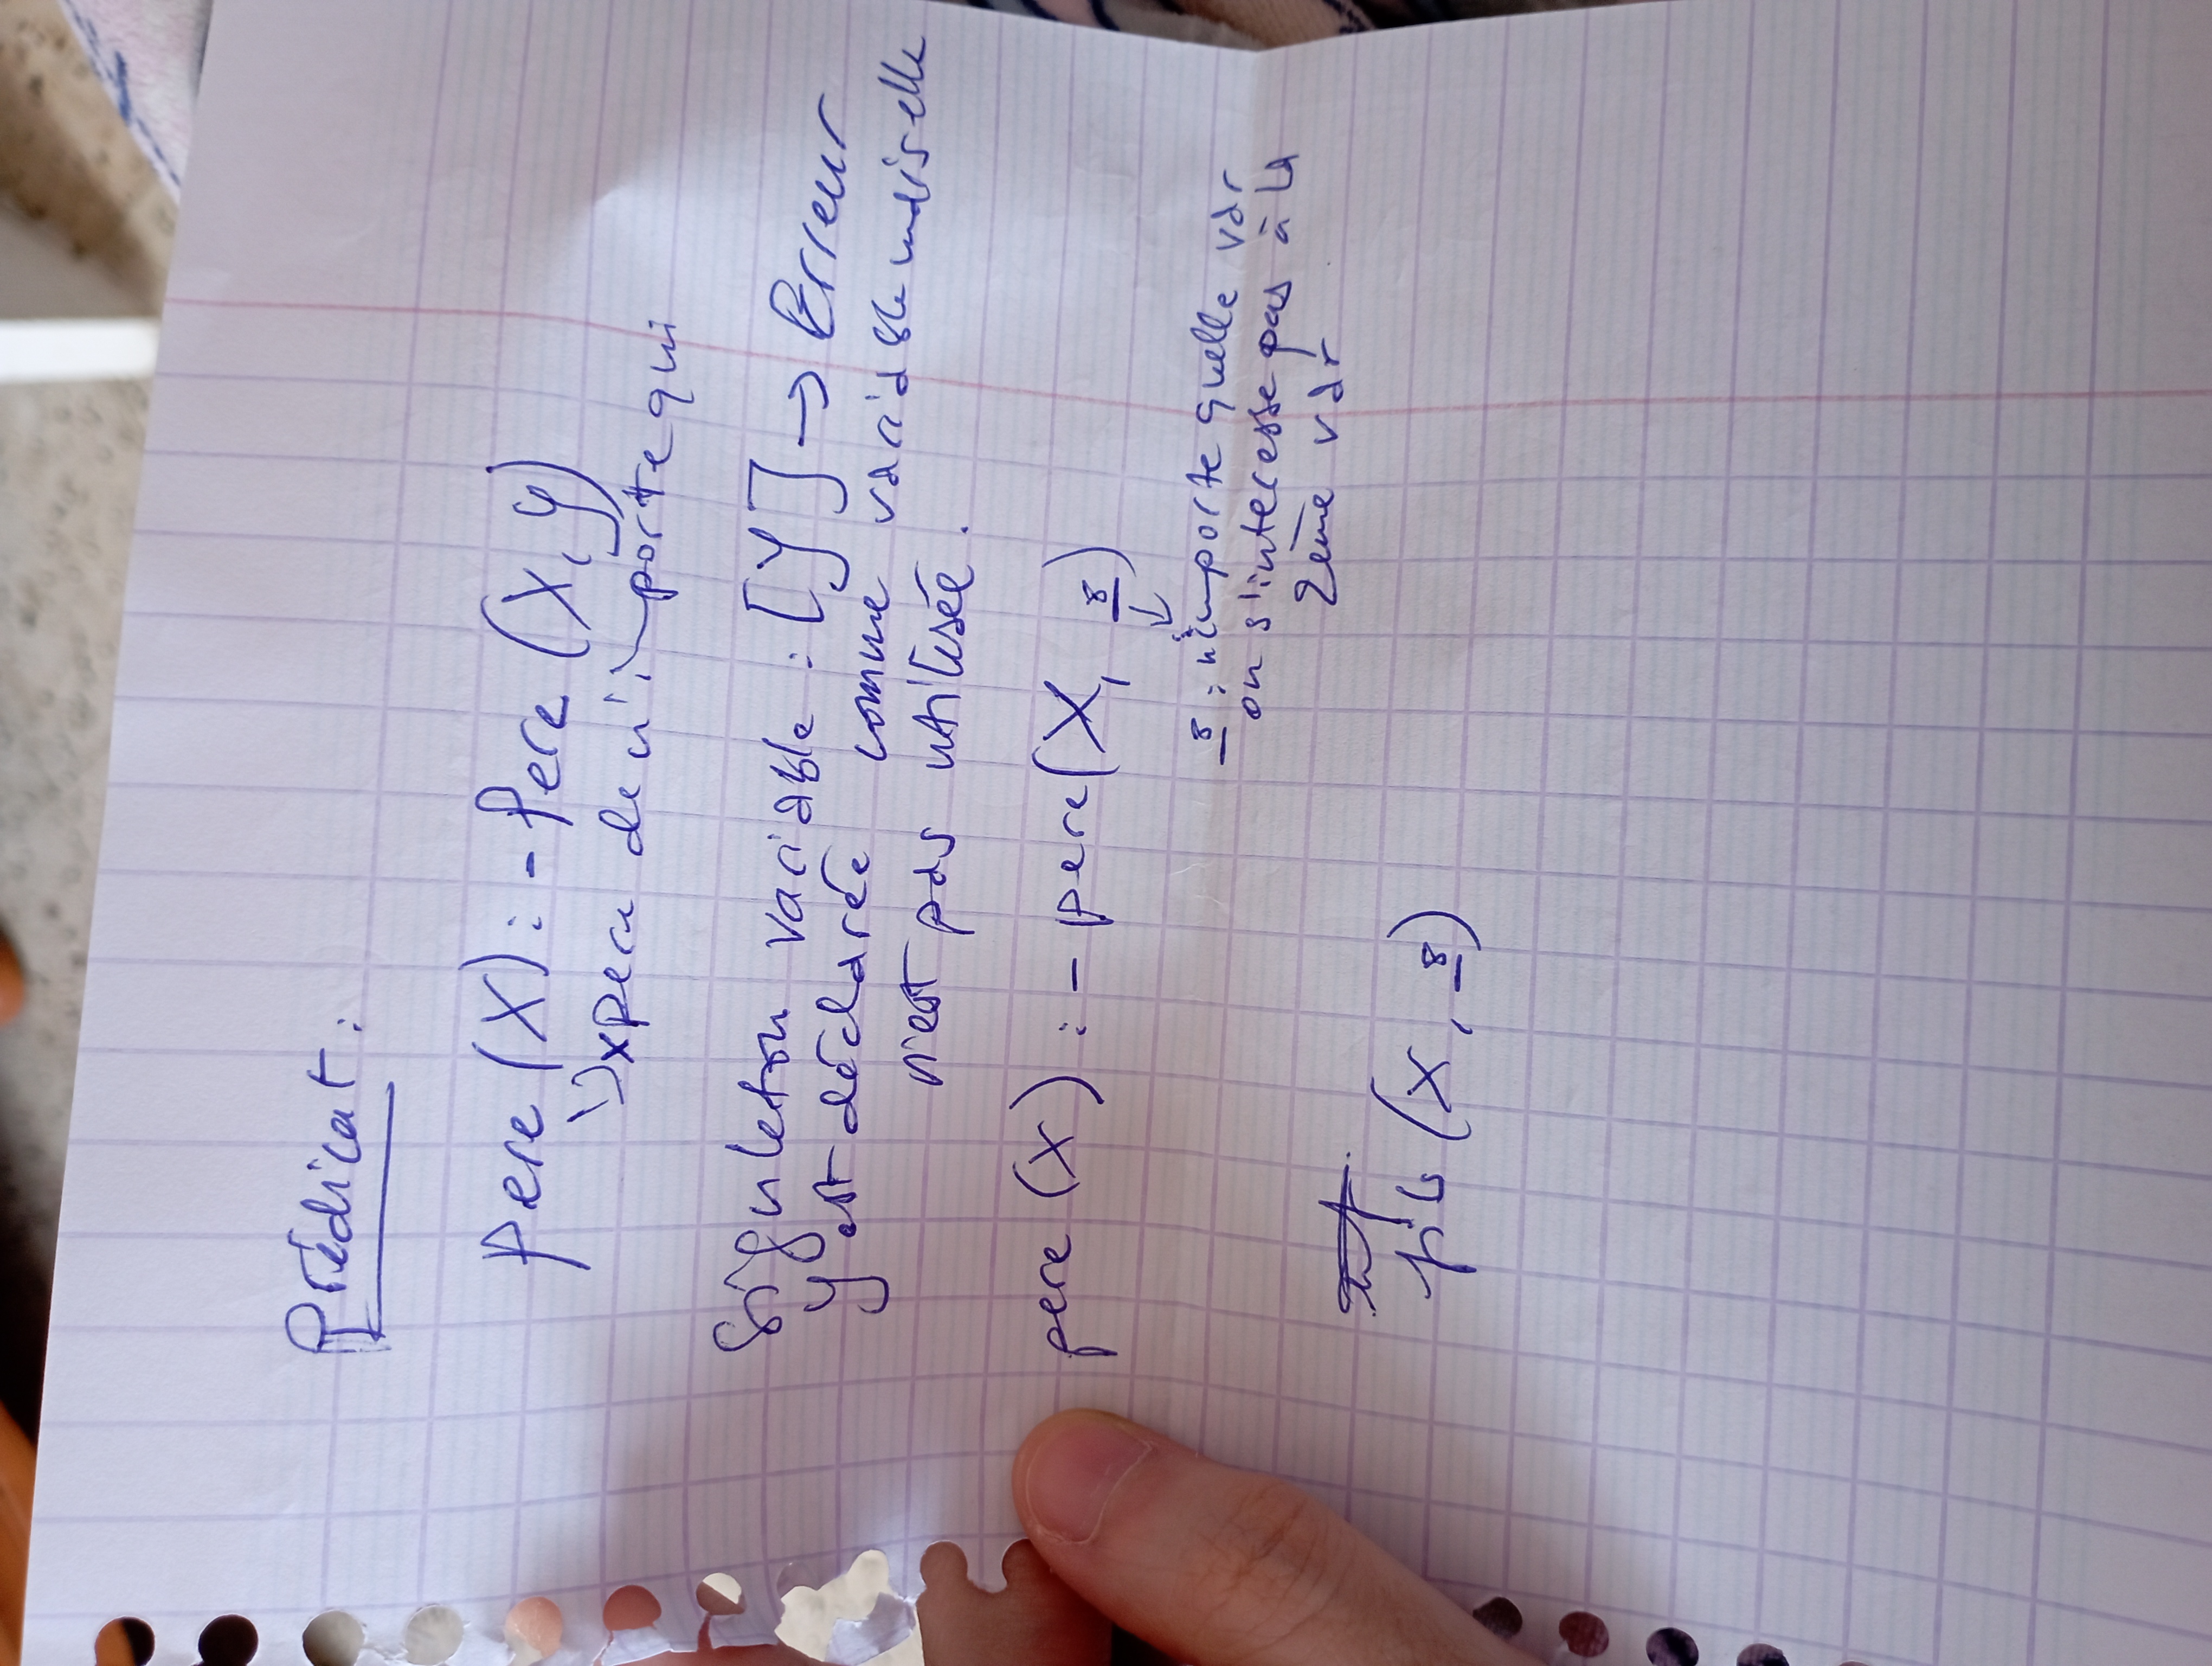 Prédicat :
pere (X) :- Pere (X, Y)
↳ X pere de n'importe qui
Singuleton variable : [Y] → Erreur
Y est déclarée comme variable mais elle
n'est pas utilisée.
pere (X) :- pere (X, _8)
↓
_8 : n'importe quelle var
on s'interesse pas à la
2eme var
fils (X, _8)